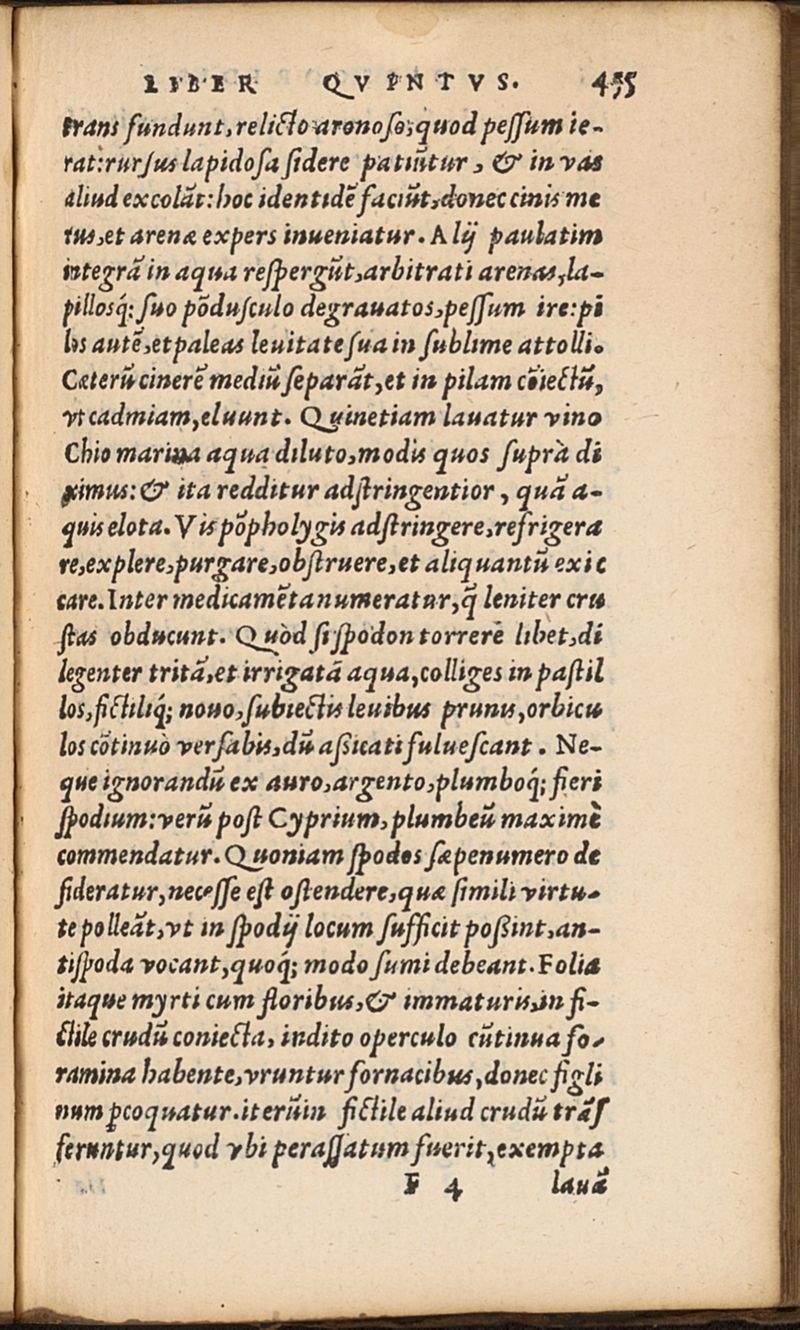 LIBER QVINTVS. 435
trans fundunt, relicto arenoso, quod pessum ie-
rat: rursus lapidosa sidere patiũtur, & in vas
aliud excolãt: hoc identidẽ faciũt, donec cinis me
rus, et arenæ expers inueniatur. Alij paulatim
integrã in aqua respergũt, arbitrati arenas, la-
pillosq́; suo põdusculo degrauatos, pessum ire: pi
los autẽ, et paleas leuitate sua in sublime attolli.
Cæterũ cinerẽ mediũ separãt, et in pilam cõiectũ,
vt cadmiam, eluunt. Quinetiam lauatur vino
Chio marina aqua diluto, modis quos suprà di
ximus: & ita redditur adstringentior, quã a-
quis elota. Vis põpholygis adstringere, refrigera
re, explere, purgare, obstruere, et aliquantũ exic
care. Inter medicamẽta numeratur, q̃ leniter cru
stas obducunt. Quòd si spodon torrere libet, di
legenter tritã, et irrigatã aqua, colliges in pastil
los, fictiliq́; nouo, subiectis leuibus prunis, orbicu
los cõtinuò versabis, dũ aßicati fuluescant. Ne-
que ignorandũ ex auro, argento, plumboq́; fieri
spodium: verũ post Cyprium, plumbeũ maximè
commendatur. Quoniam spodos sæpenumero de
sideratur, necesse est ostendere, quæ simili virtu-
te polleãt, vt in spodij locum sufficit poßint, an-
tispoda vocant, quoq́; modo sumi debeant. Folia
itaque myrti cum floribus, & immaturis, in fi-
ctile crudũ coniecta, indito operculo cũtinua fo-
ramina habente, vruntur fornacibus, donec figli
num ꝑcoquatur. iterũ in fictile aliud crudũ trãs
feruntur, quod vbi perassatum fuerit, exempta
F 4 lauã